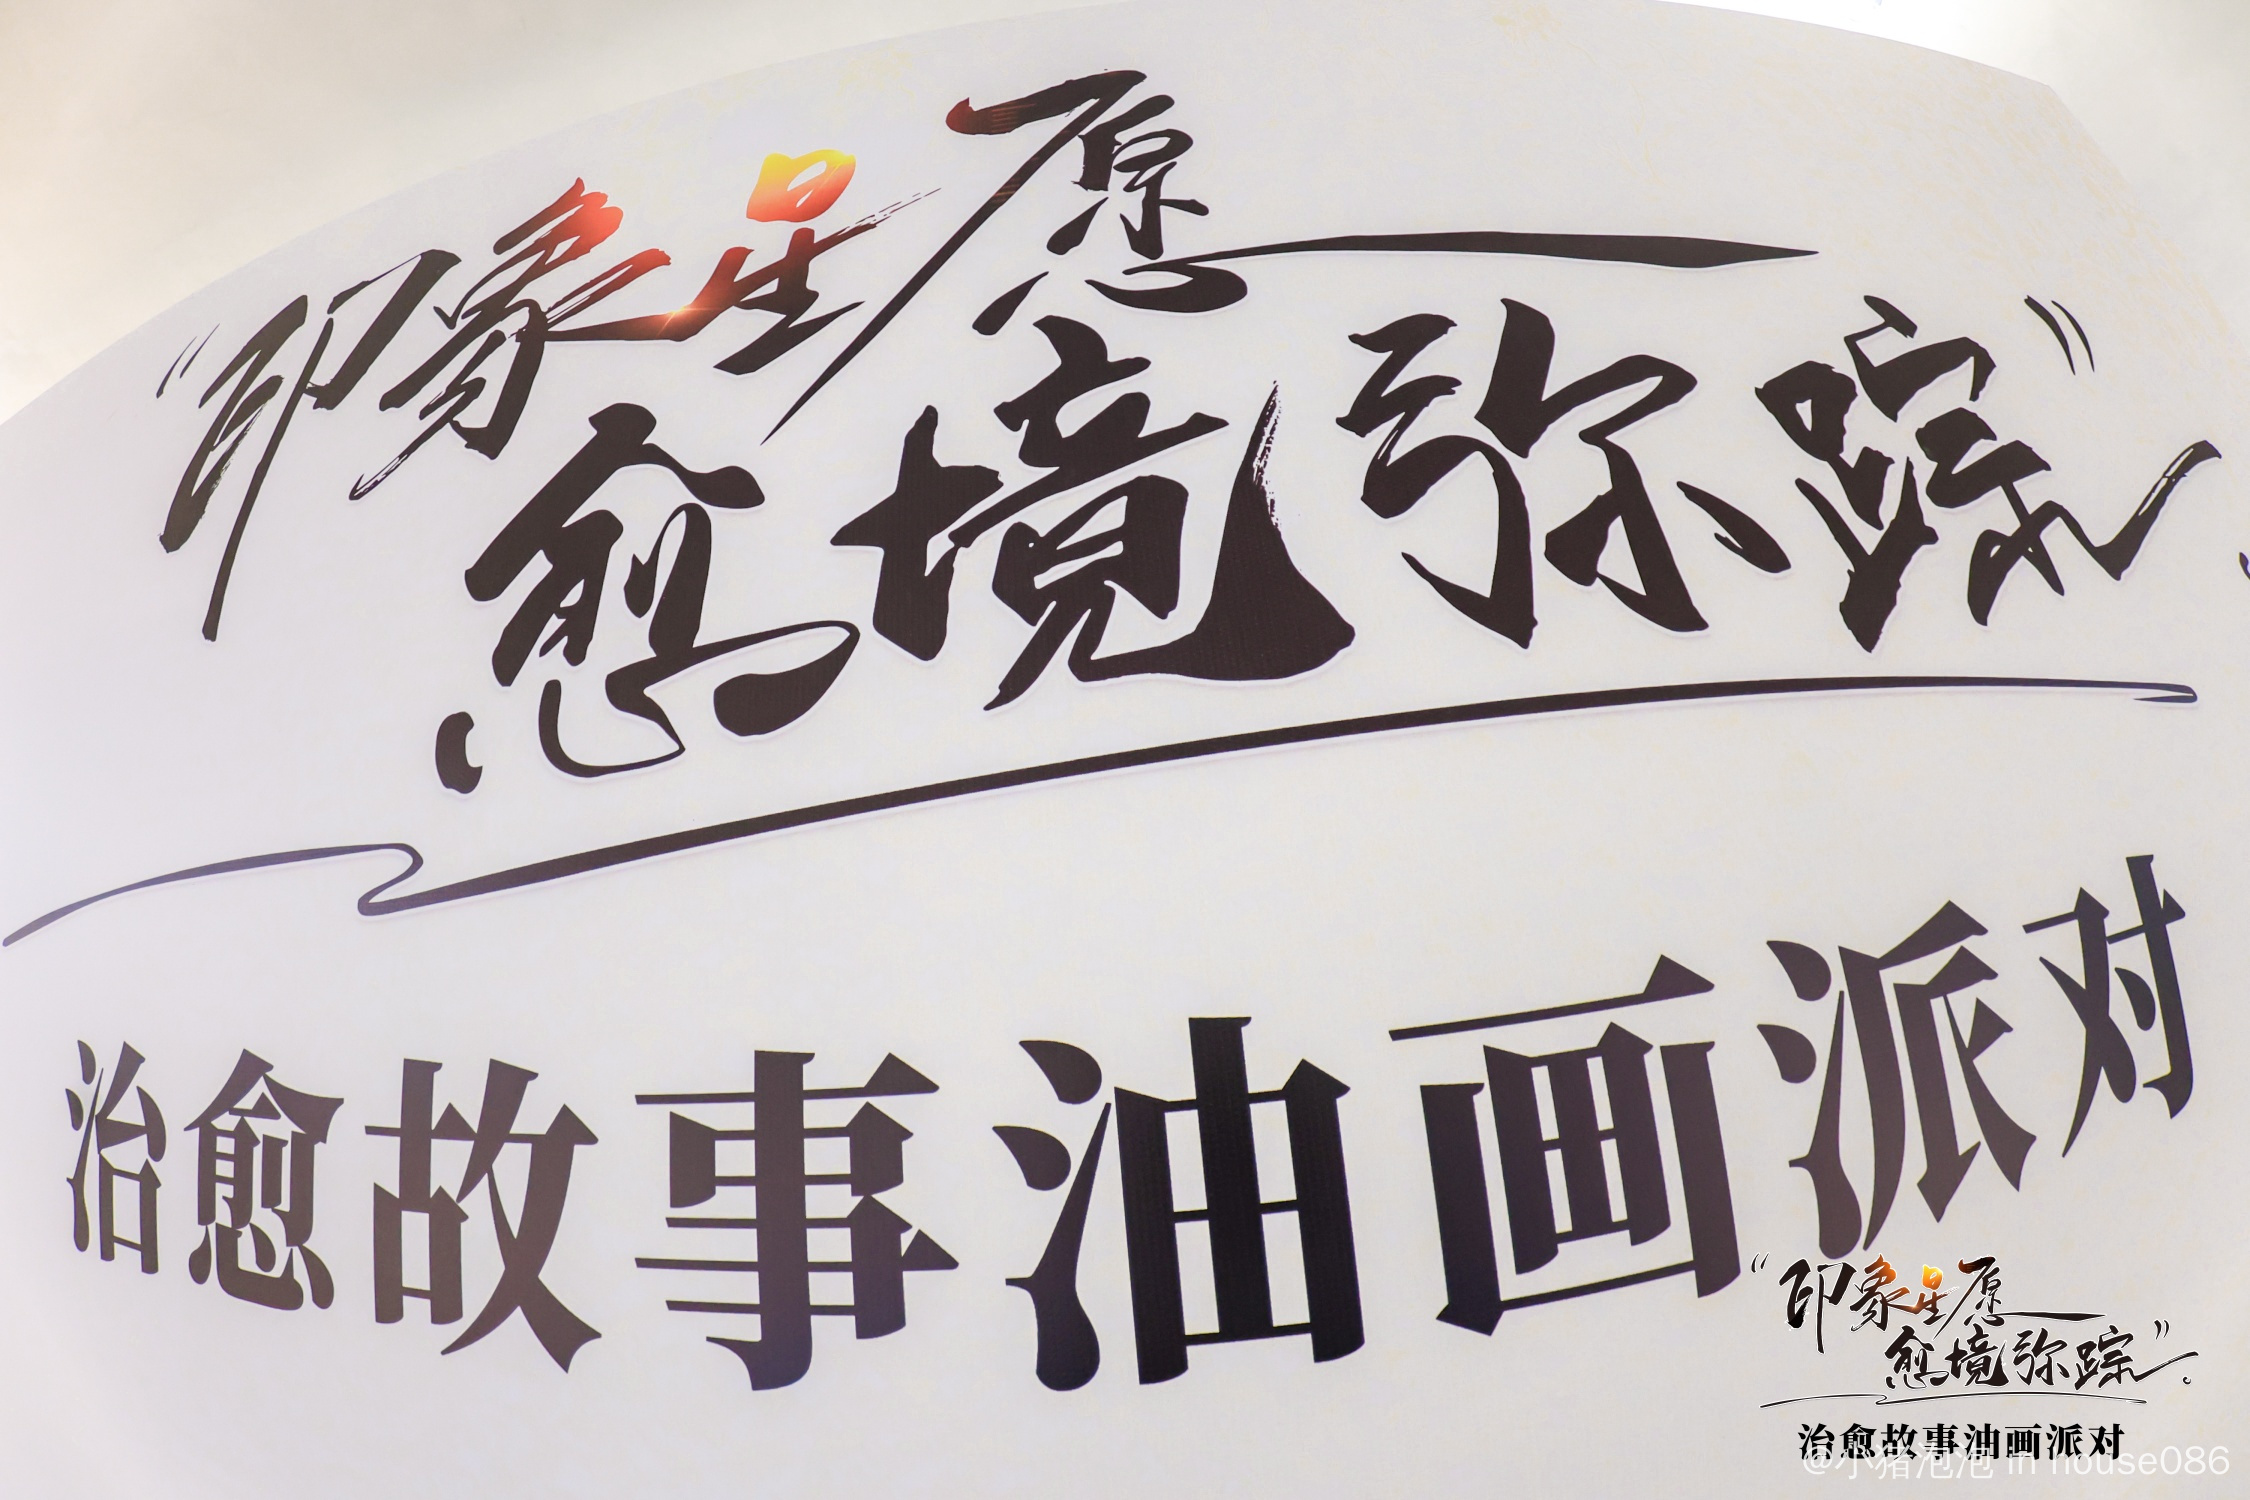 “印象星愿
愈境弥踪”
治愈故事油画派对
“印象星愿
愈境弥踪”
治愈故事油画派对
@小猪泡泡 in house086